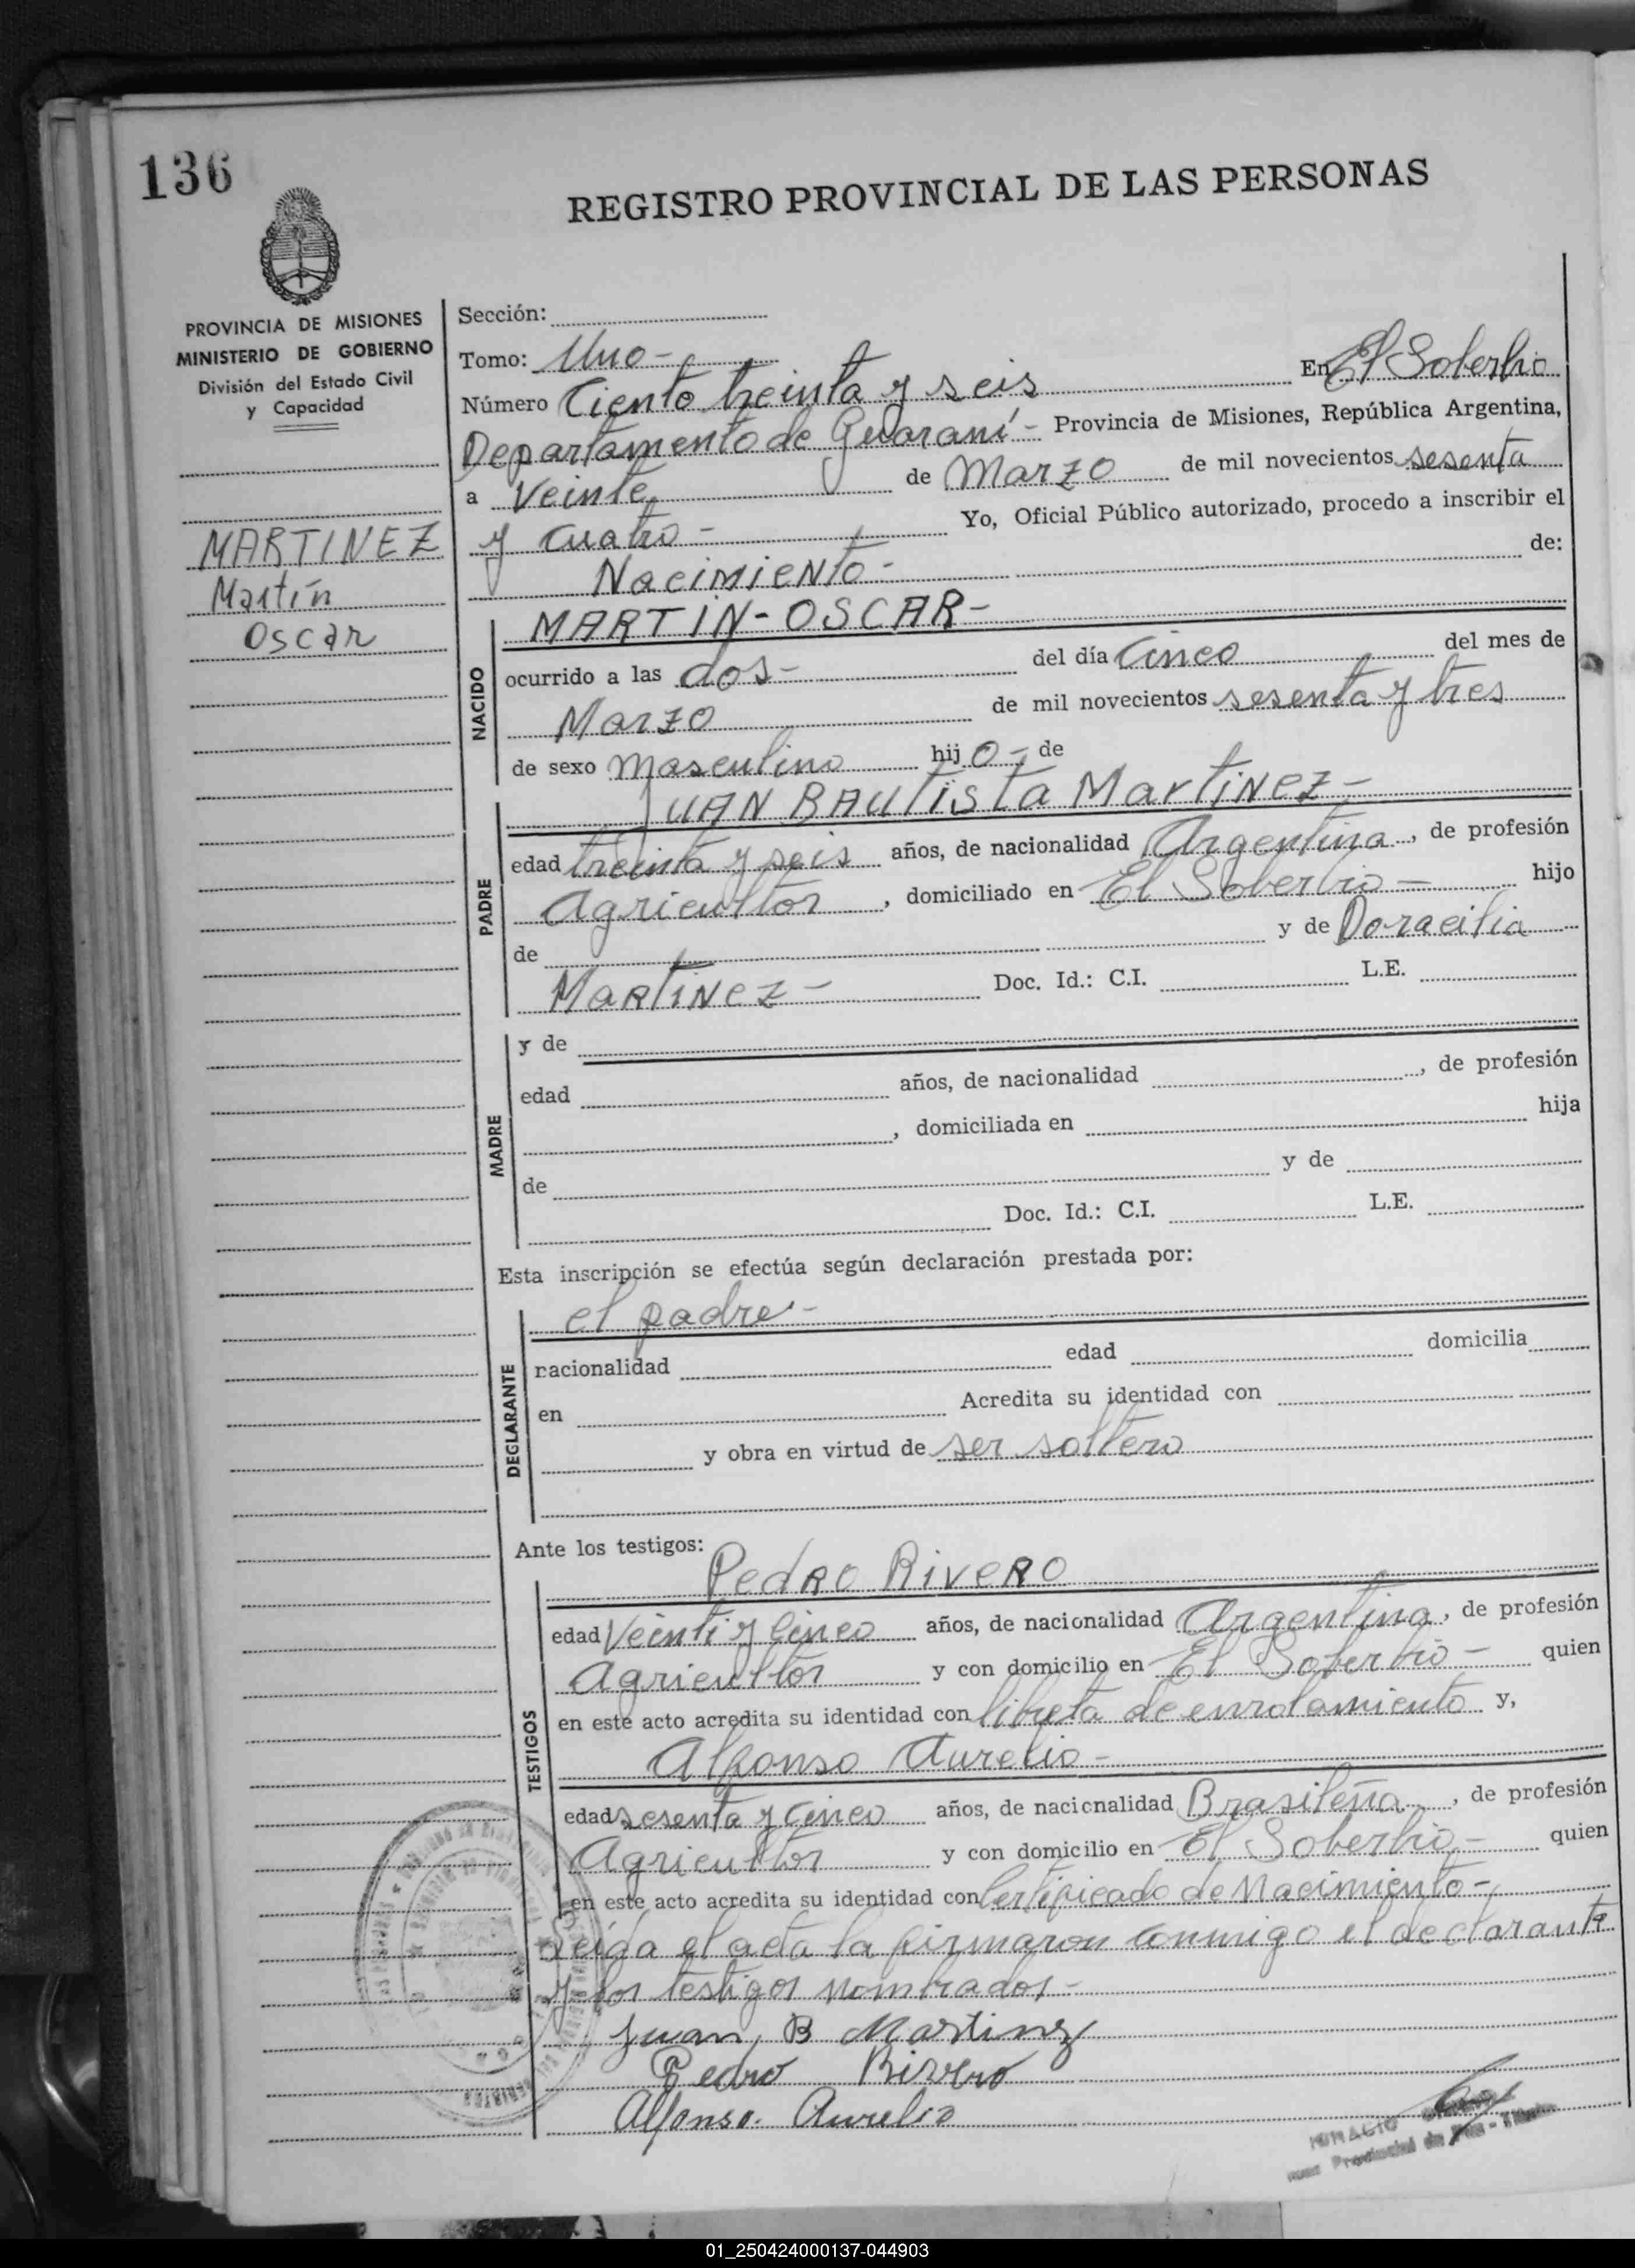 136
REGISTRO PROVINCIAL DE LAS PERSONAS
PROVINCIA DE MISIONES
MINISTERIO DE GOBIERNO
División del Estado Civil
y Capacidad
MARTINEZ
Martín
Oscar
Sección:
Tomo: Uno-
Número Ciento treinta y seis En El Soberbio
Departamento de Guaraní- Provincia de Misiones, República Argentina,
a Veinte de Marzo de mil novecientos sesenta
y cuatro- Yo, Oficial Público autorizado, procedo a inscribir el
Nacimiento- de:
NACIDO
MARTIN-OSCAR-
ocurrido a las dos- del día Cinco del mes de
Marzo de mil novecientos sesenta y tres
de sexo masculino hijo- de
PADRE
JUAN BAUtista MartiNEZ-
edad treinta y seis años, de nacionalidad Argentina, de profesión
Agricultor, domiciliado en El Soberbio- hijo
de y de Doracilia
MaRtiNez- Doc. Id.: C.I. L.E.
MADRE
y de
edad años, de nacionalidad , de profesión
, domiciliada en hija
de y de
Doc. Id.: C.I. L.E.
Esta inscripción se efectúa según declaración prestada por:
DECLARANTE
el padre-
nacionalidad edad domicilia
en Acredita su identidad con
y obra en virtud de ser soltero
Ante los testigos:
TESTIGOS
PedRO RiVERO
edad Veinti y cinco años, de nacionalidad Argentina, de profesión
Agricultor y con domicilio en El Soberbio- quien
en este acto acredita su identidad con libreta de enrolamiento y,
Alfonso Aurelio-
edad sesenta y cinco años, de nacionalidad Brasileña, de profesión
Agricultor y con domicilio en El Soberbio- quien
en este acto acredita su identidad con Certificado de Nacimiento-
Leída el acta la firmaron conmigo el declarante
y los testigos nombrados-
Juan, B Martinez
Pedro Rivero
Alfonso. Aurelio
01_250424000137-044903